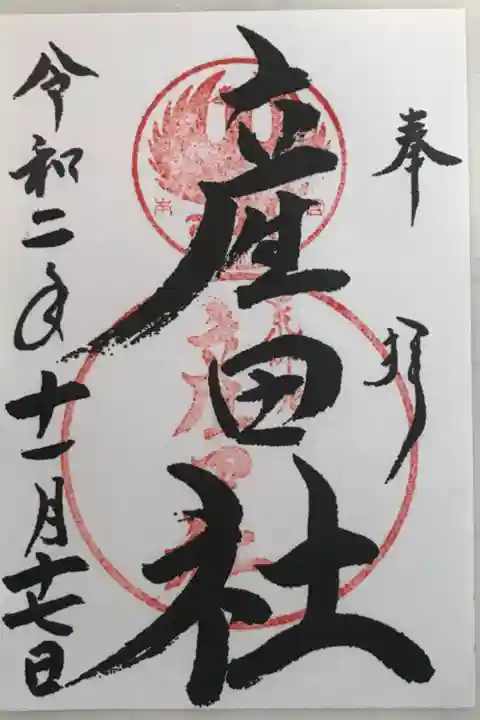 奉拝
産田社
令和二年十一月十七日